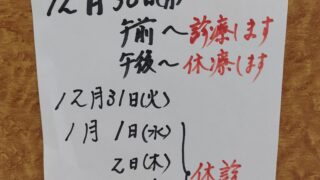 12月30日(月)
午前〜診療します
午後〜休療します
12月31日(火)
1月1日(水)
2日(木)
休診